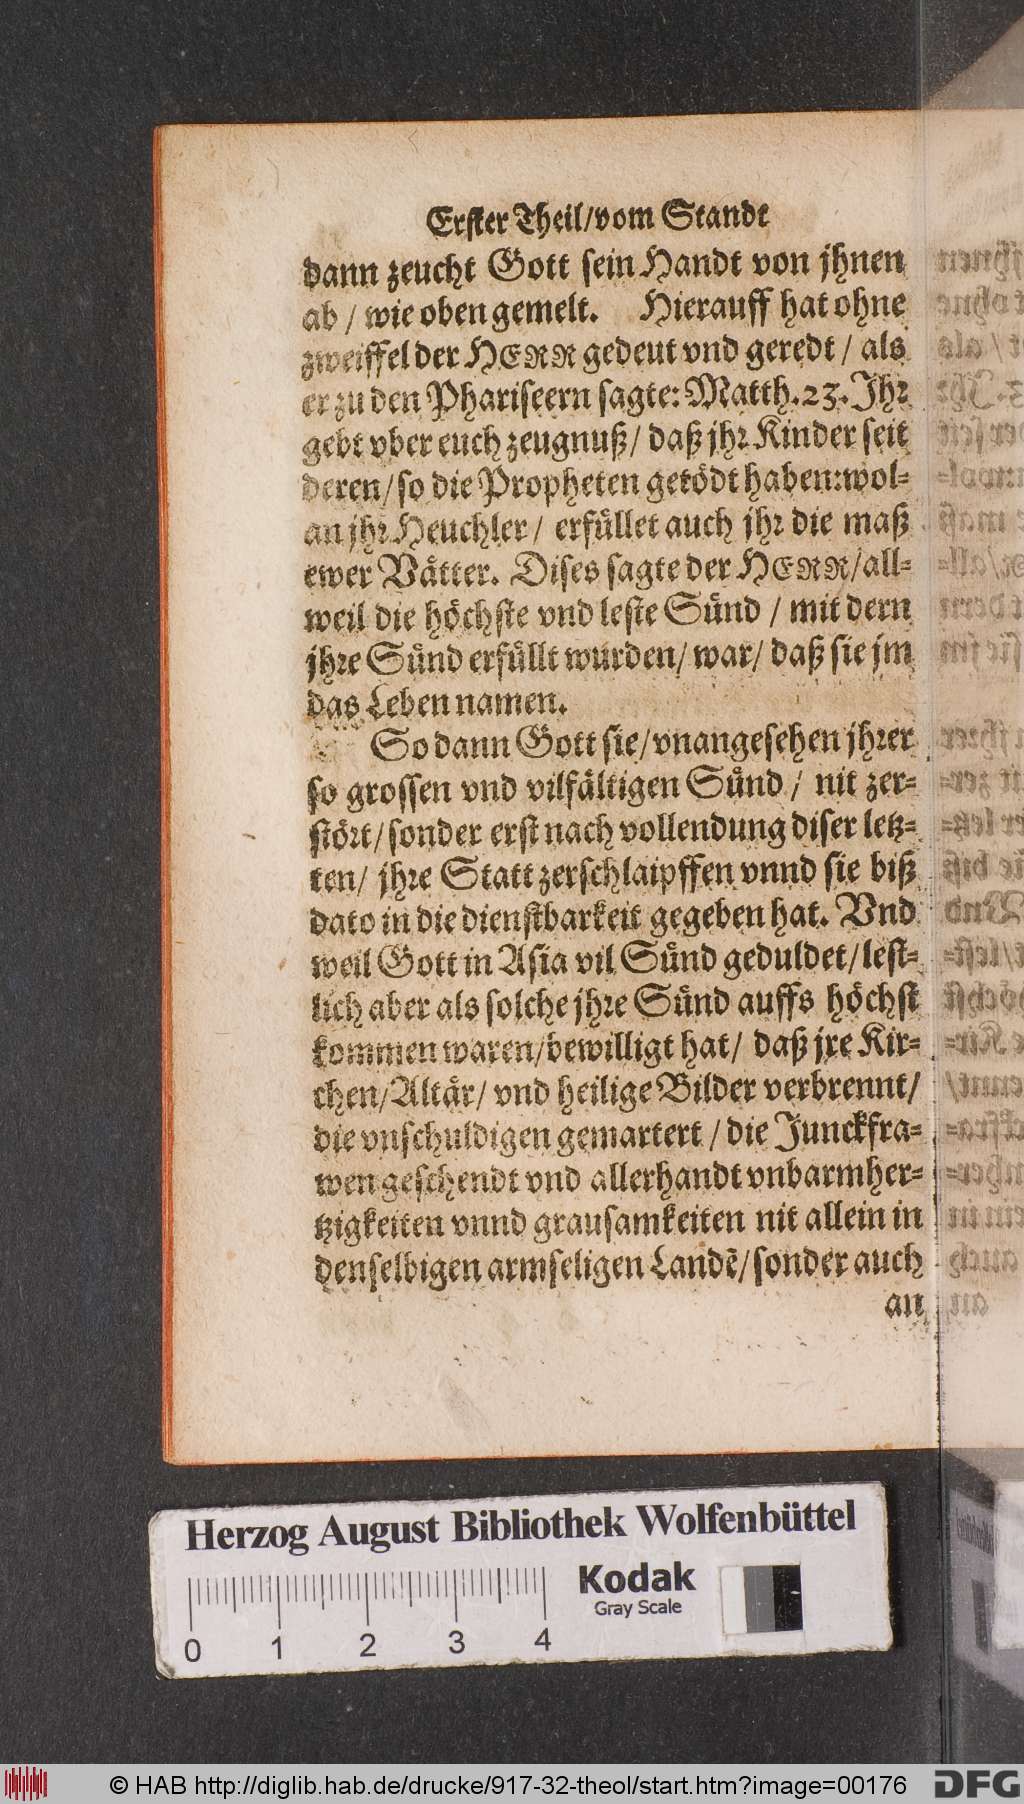 Erster Theil/vom Standt
dann zeucht Gott sein Handt von jhnen
ab / wie oben gemelt. Hierauff hat ohne
zweiffel der HERR gedeut vnd geredt / als
er zu den Phariseern sagte: Matth. 23. Jhr
gebt vber euch zeugnuß/ daß jhr Kinder seit
deren/so die Propheten getödt haben: wol-
an jhr Heuchler/ erfüllet auch jhr die maß
ewer Vätter. Dises sagte der HERR/all-
weil die höchste vnd leste Sünd / mit dern
jhre Sünd erfüllt wurden/ war/ daß sie jm
das Leben namen.
So dann Gott sie/vnangesehen jhrer
so grossen vnd vilfältigen Sünd / nit zer-
stört/sonder erst nach vollendung diser letz-
ten/ jhre Statt zerschlaipffen vnnd sie biß
dato in die dienstbarkeit gegeben hat. Vnd
weil Gott in Asia vil Sünd geduldet/lest-
lich aber als solche jhre Sünd auffs höchst
kommen waren/bewilligt hat/ daß jre Kir-
chen/Altär/ vnd heilige Bilder verbrennt/
die vnschuldigen gemartert / die Junckfra-
wen geschendt vnd allerhandt vnbarmher-
tzigkeiten vnnd grausamkeiten nit allein in
denselbigen armseligen Landẽ/sonder auch
an
Herzog August Bibliothek Wolfenbüttel
Kodak
Gray Scale
0 1 2 3 4
© HAB http://diglib.hab.de/drucke/917-32-theol/start.htm?image=00176
DFG